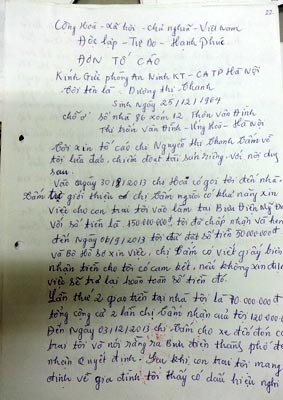 22
Cộng Hoà - xã hội - chủ nghĩa - Việt Nam
Độc lập - Tự Do - Hạnh Phúc
ĐƠN TỐ CÁO
Kính Gửi phòng An Ninh KT - CATP Hà Nội
Tôi tên là - Dương thị - Thanh
Sinh Ngày 25/12/1964
chỗ ở số nhà 86 xóm 12 Thôn Vân Đình
Thị trấn Vân Đình - Ứng Hoà - Hà Nội
Tôi xin tố cáo chị Nguyễn Thị Thanh Bấm về
tội lừa đảo, chiếm đoạt tài sản riêng với nội dung
sau
Vào ngày 30/8/2013 chị Hoà có gọi tôi đến nhà
Bấm giới thiệu chị Bấm người có khả năng xin
Việc cho con trai tôi vào làm tại Bưu Điện Mỹ Đ
Với số tiền là 150.000.000đ, tôi đã chấp nhận và hẹn
đến Ngày 06/9/2013 tôi đã đặt số tiền 50.000.000đ
và Bộ hồ sơ xin việc, chị Bấm có viết giấy biên
nhận tiền cho tôi có cam kết, nếu không xin được
việc sẽ trả lại hoàn toàn số tiền đó.
Lần thứ 2 giao tiền tại nhà tôi là 70.000.000đ
tổng cộng cả 2 lần chị Bấm nhận của tôi 120.000.000
Đến Ngày 03/12/2013 chị Bấm cho xe đến đón con
trai tôi và nói rằng ra Bưu điện thành phố để
nhận Quyết định. Sau khi con trai tôi mang
định về gia đình tôi thấy có dấu hiệu nghi